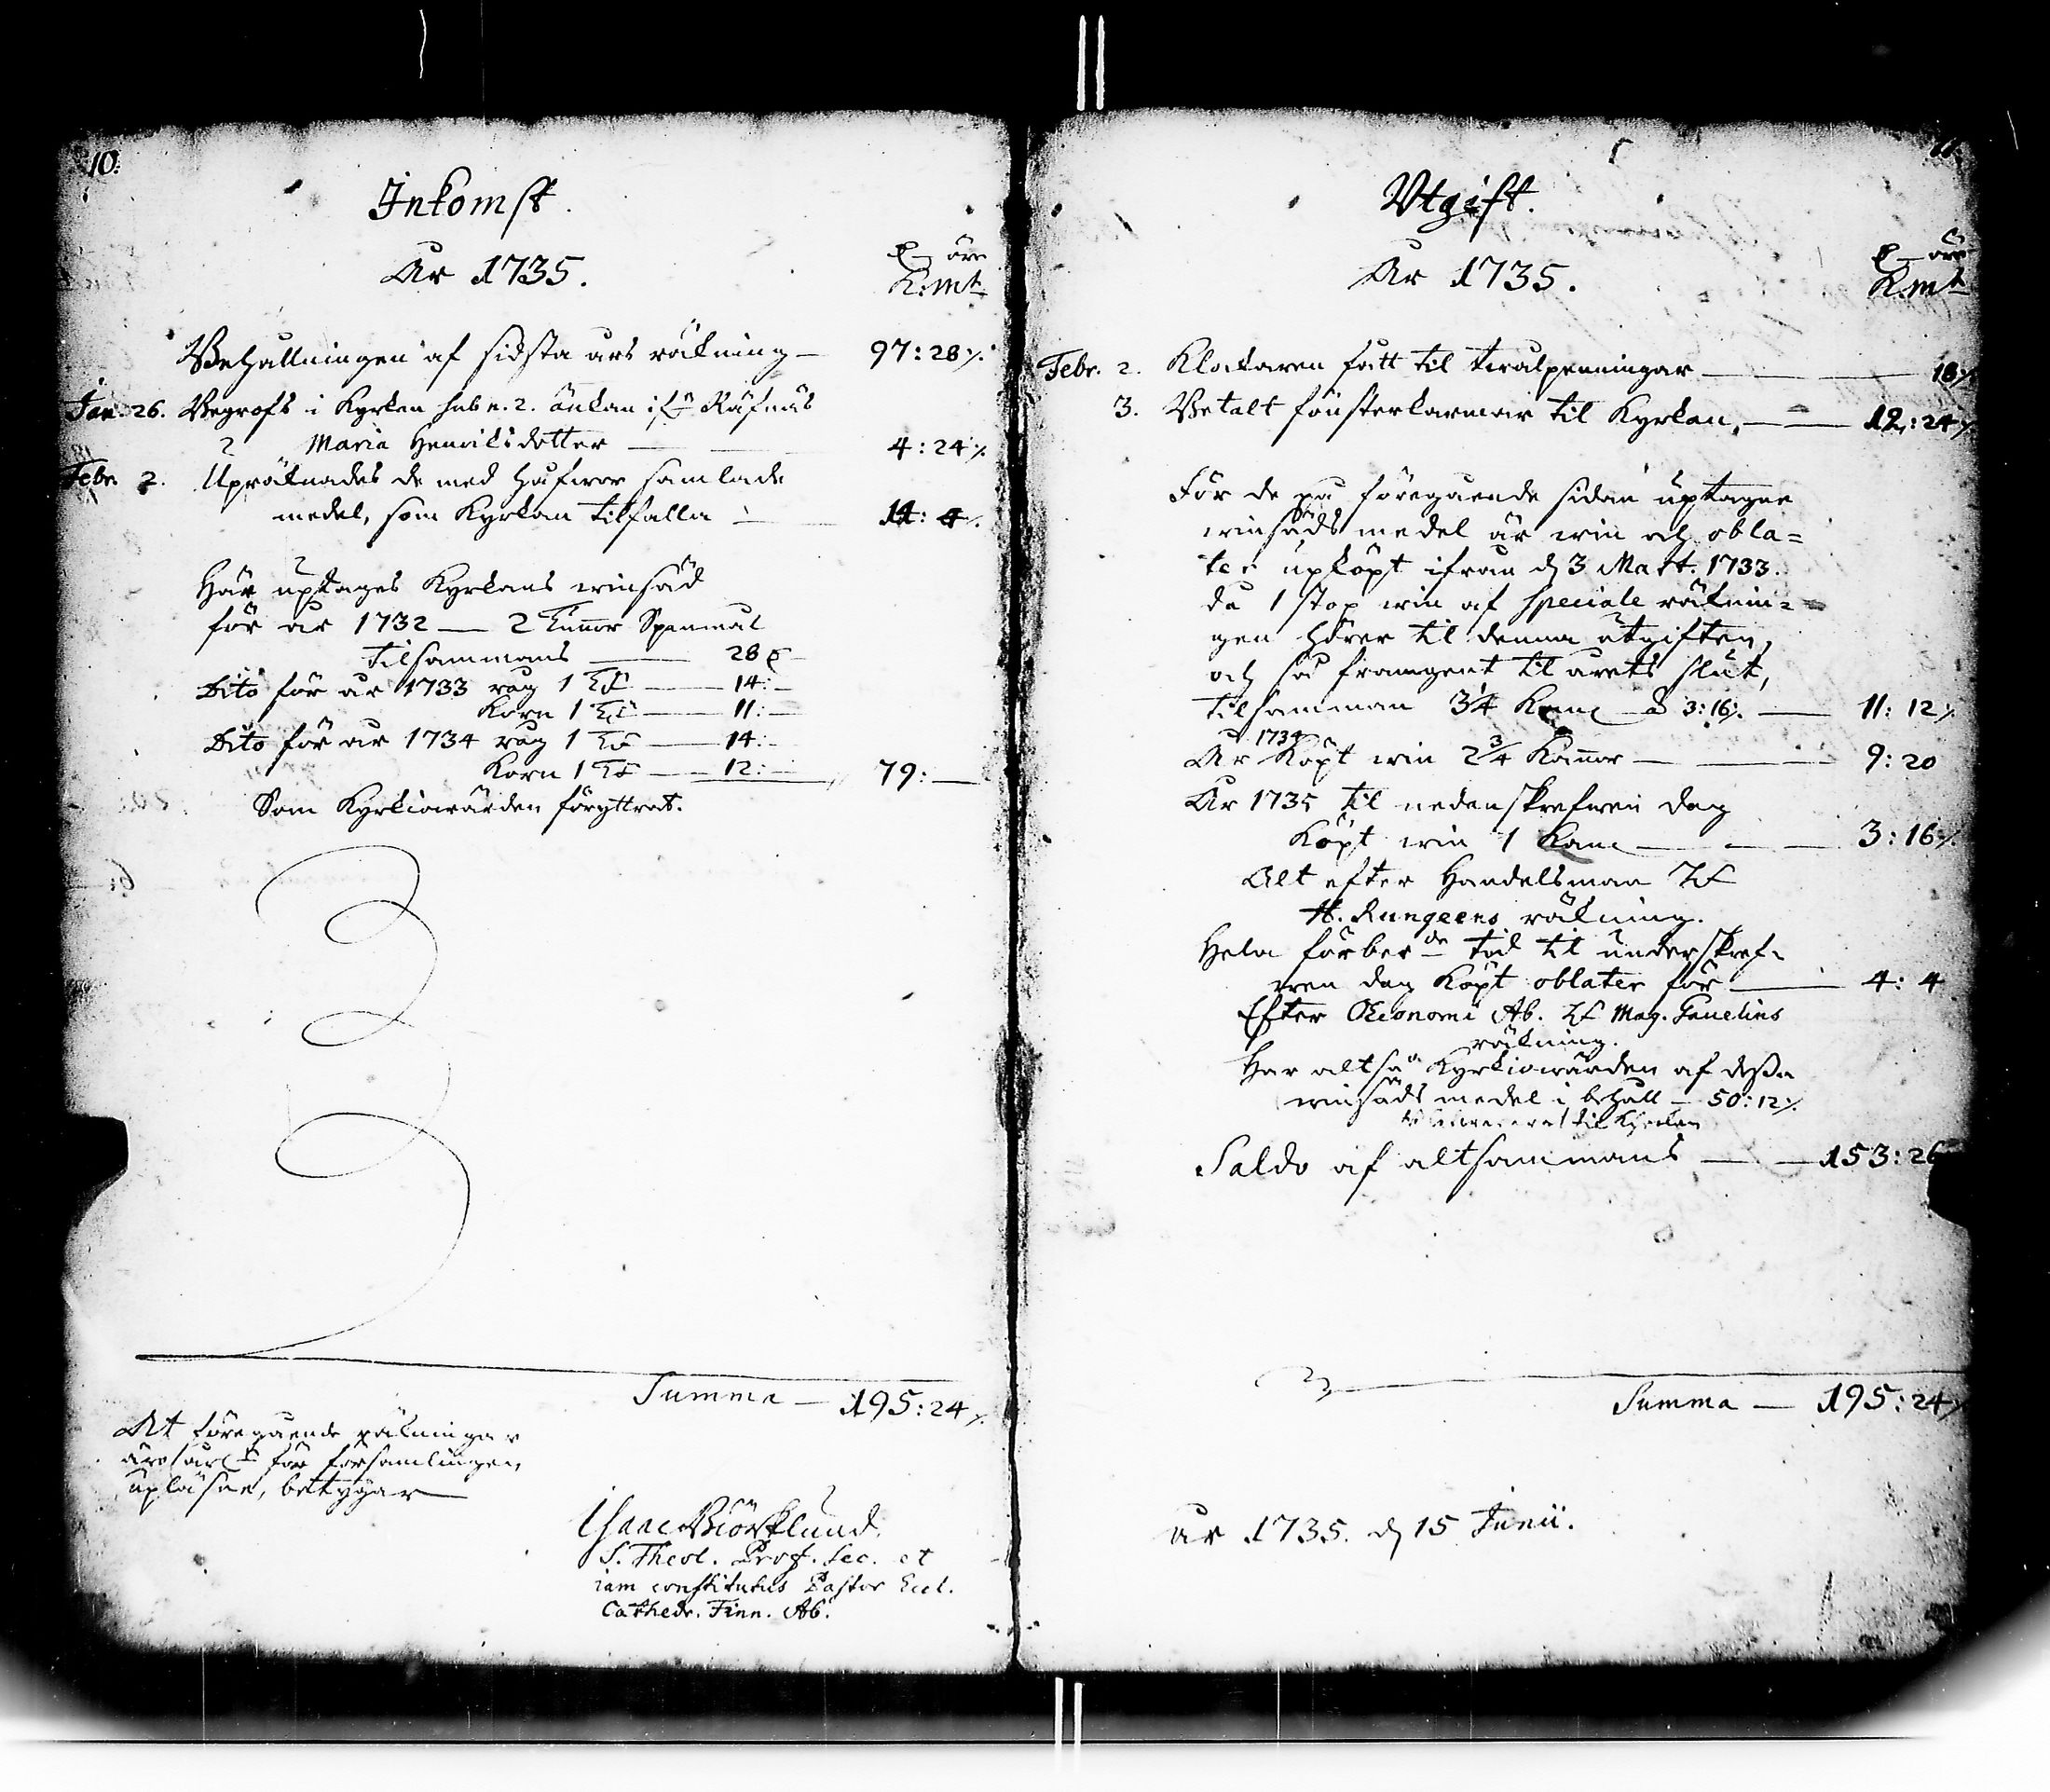 10.
Inkomst.
År 1735.
öre
K.mt
Behållningen af sidsta års räkning — 97:28 ⁒.
Jan. 26. Begrofs i Kyrkan sub n. 2. änkan ifr. Räfnäs
Maria Henriksdotter — 4:24 ⁒.
Febr. 2. Upräknades de med Håfwor samlade
medel, som Kyrkan tilfalla — 14: 4 ⁒.
Här uptages Kyrkans winsäd
för år 1732 — 2 Tunnor Spanmål
tilsammans — 28
Dito för år 1733 råg 1 Tu — 14:—
Korn 1 Tu — 11:—
Dito för år 1734 råg 1 Tu — 14:—
Korn 1 Tu — 12:— 79:—
Som Kyrkiowärden föryttrat.
Summa — 195:24 ⁒.
At föregående räkningar
för församlingen
upläsne, betygar
Isaac Biörklund.
S. Theol. Prof. Sec. et
iam constitutus Pastor Eccl.
Cathedr. Finn. Ab.
11.
Utgift.
År 1735.
öre
K.mt
Febr. 2. Klockaren fått til twålpenningar — 18 ⁒
3. Betalt fönsterkarmar til Kyrkan, — 12:24 ⁒
För de på föregående sidan uptagne
winsäds medel är win och obla=
ter upköpt ifrån d. 3 Mart. 1733.
då 1 stop win af speciale räknin=
gen hörer til denna utgiften,
och så framgent til årets slut,
tilsamman 3¼ Kann à 3:16 ⁒. — 11: 12 ⁒
År 1734 Köpt win 2¾ Kannor — 9:20
År 1735 til nedanskrefwen dag
Köpt win 1 Kann — 3:16 ⁒.
Alt efter Handelsman
H. Rungeens räkning.
Hela förber.de tid til underskref=
wen dag Köpt oblater för — 4: 4
Efter Œconomi Ab. Mag. Gauelins
räkning.
Har altså Kyrkiowärden af dessa
winsäds medel i behåll — 50:12 ⁒.
til Kyrkan
Saldo af altsammans — 153:26
Summa — 195:24 ⁒
År 1735. d. 15 Junii.